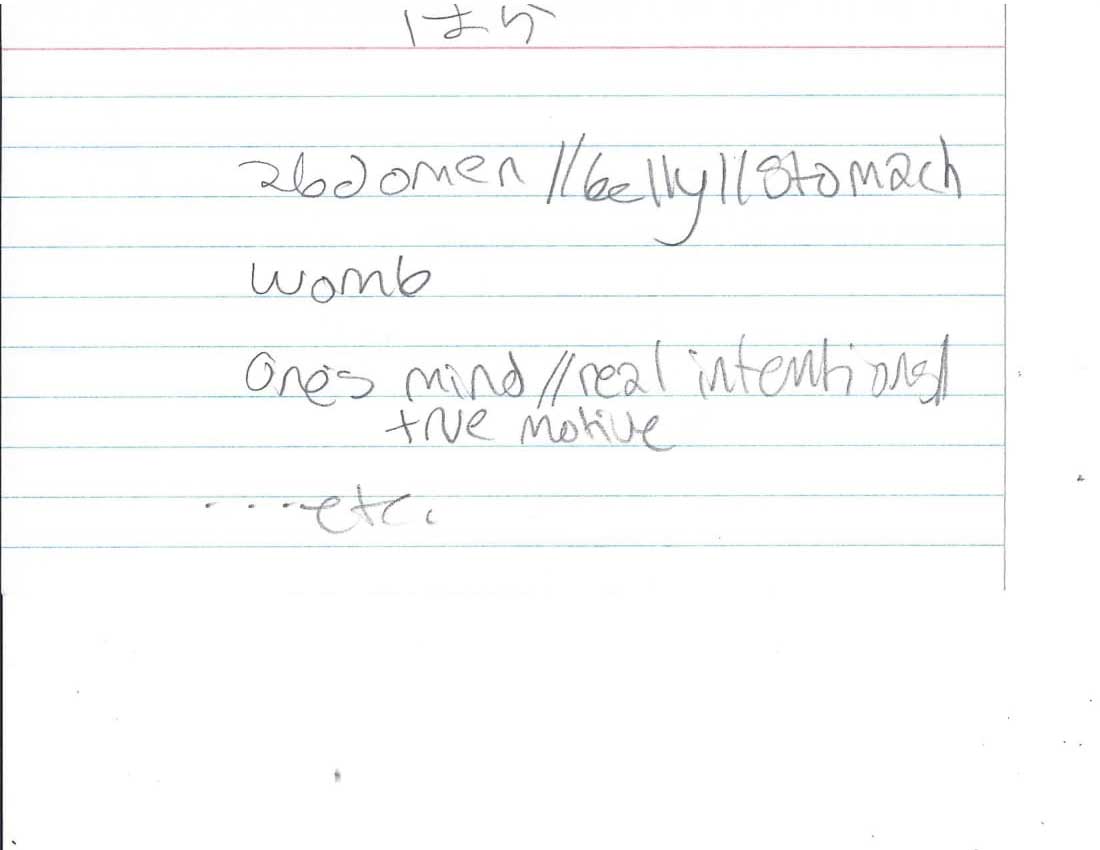 はら
abdomen//belly//stomach
womb
One's mind//real intentions/
true motive
....etc.